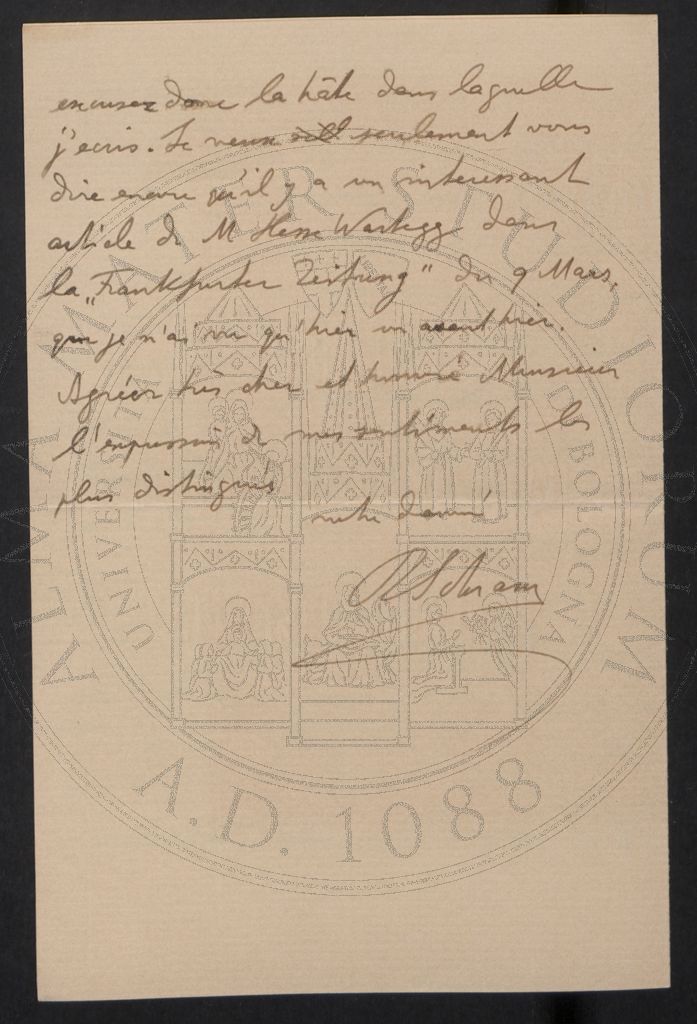 excusez donc la hâte dans laquelle
j'ecris. Je veux seulement vous
dire encore qu'il y a un interessant
article de M Hesse Wartegg dans
la „Frankfurter Zeitung" du 9 Mars,
que je n'ai vu qu'hier ou avant hier.
Agréez très cher et honoré Monsieur
l'expression de mes sentiments les
plus distingués
votre devoué
RSchram
ALMA MATER STUDIORUM
UNIVERSITÀ DI BOLOGNA
A.D. 1088